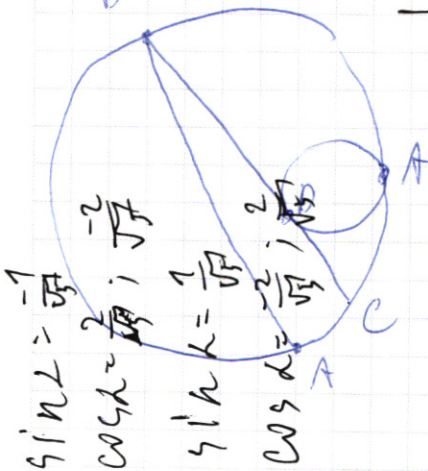 sin α = -1/√5
cos α = 2/√5 ; -2/√5
sin α = 1/√5
cos α = -2/√5 ; 2/√5
A
C
A